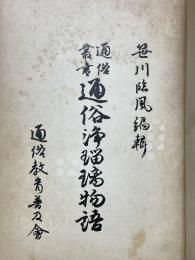 笹川臨風編輯
通俗叢書
通俗浄瑠璃物語
通俗教育普及會